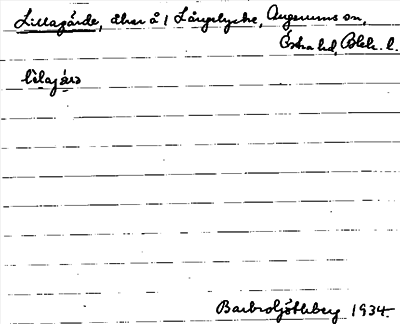 Lillagärde, åker å 1 Långelycke, Augerums sn,
Östra hd, Blek. l.
Barbro Götlberg 1934.